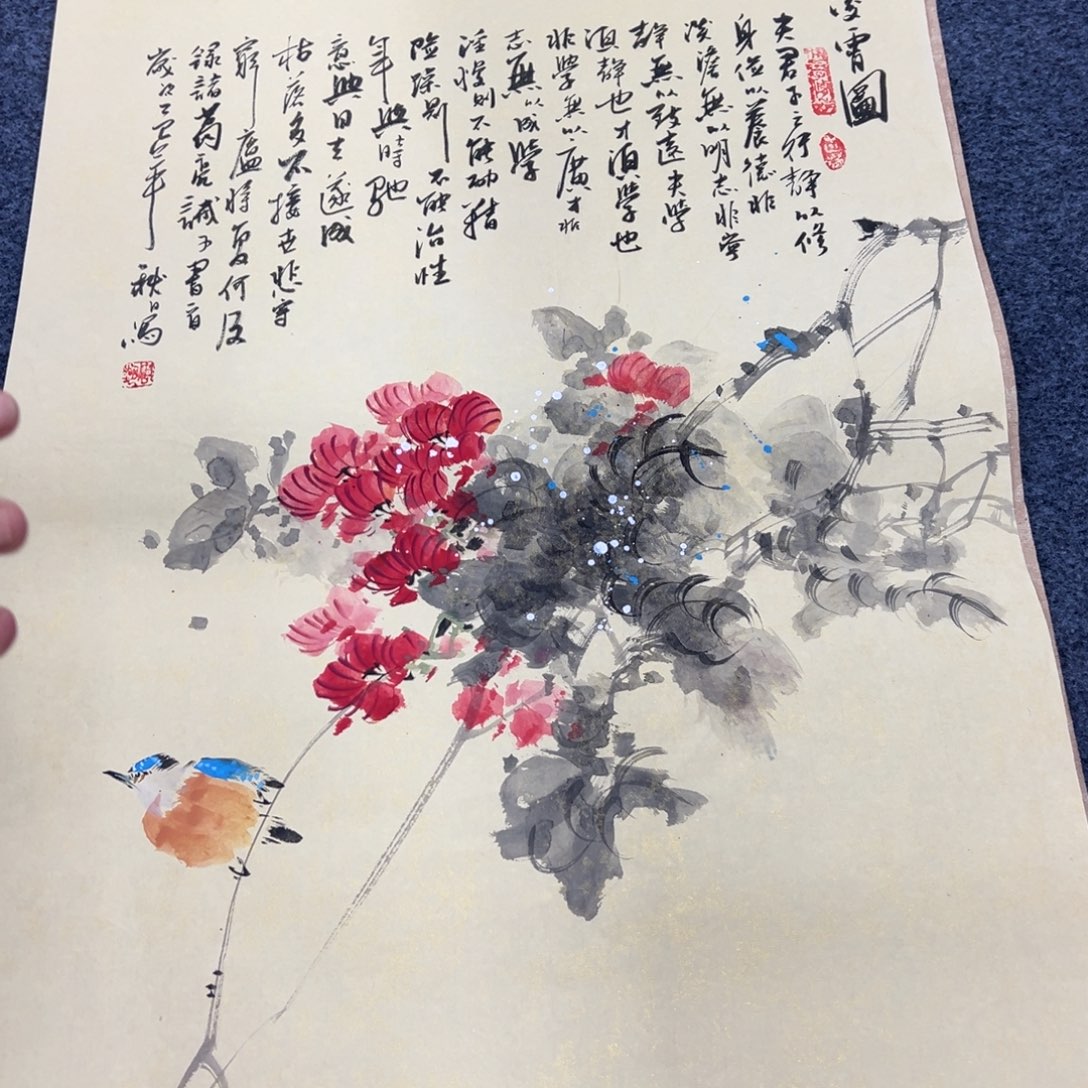 凌霄圖
夫君子之行靜以修
身儉以養德非
淡澹無以明志非寧
靜無以致遠夫學
須靜也才須學也
非學無以廣才非
志無以成學
淫慢則不能研精
險躁則不能治性
年與時馳
意與日去遂成
枯落多不接世悲守
窮廬將復何及
錄諸葛亮誡子書
歲次乙巳年秋日寫